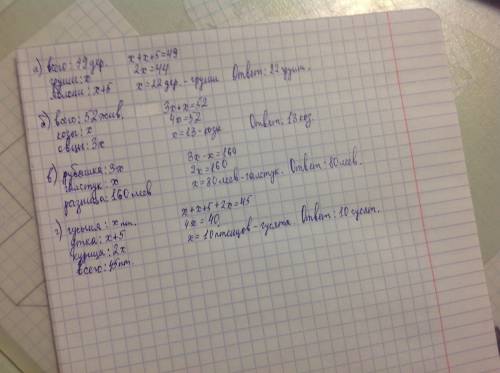 а) всего: 49 дер.   x+x+5=49
груши: x   2x=44
яблони: x+5   x=22 дер. - груши   Ответ: 22 груши.
б) всего: 52 жив.   3x+x=52
козы: x   4x=52
овцы: 3x   x=13 - козы   Ответ: 13 коз.
в) рубашка: 3x   3x-x=160
галстук: x   2x=160
разница: 160 леев   x=80 леев - галстук. Ответ: 80 леев.
г) гусыня: x пт.   x+x+5+2x=45
утка: x+5   4x=40
курица: 2x   x=10 птенцов - гусята. Ответ: 10 гусят.
всего: 45 пт.